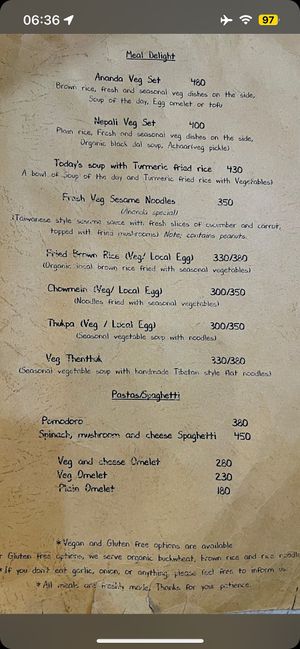 06:36
97
Meal Delight
Ananda Veg Set 480
Brown rice, fresh and seasonal veg dishes on the side,
Soup of the day, Egg omelet or tofu
Nepali Veg Set 400
Plain rice, Fresh and seasonal veg dishes on the side,
Organic black dal soup, Achaar(veg pickle)
Today's soup with Turmeric fried rice 430
A bowl of Soup of the day and Turmeric fried rice with Vegetables)
Fresh Veg Sesame Noodles 350
(Ananda special)
(Taiwanese style sesame sauce with fresh slices of cucumber and carrot,
topped with fried mushrooms) Note; contains peanuts.
Fried Brown Rice (Veg/ Local Egg) 330/380
(Organic local brown rice fried with seasonal vegetables)
Chowmein (Veg/ Local Egg) 300/350
(Noodles fried with seasonal vegetables)
Thukpa (Veg / Local Egg) 300/350
(Seasonal vegetable soup with noodles)
Veg Thenthuk 330/380
(Seasonal vegetable soup with handmade Tibetan style flat noodles)
Pastas/Spaghetti
Pomodoro 380
Spinach, mushroom and cheese Spaghetti 450
Veg and cheese Omelet 280
Veg Omelet 230
Plain Omelet 180
*Vegan and Gluten free options are available
r Gluten free options, we serve organic buckwheat, brown rice and rice noodle
*If you don't eat garlic, onion, or anything, please feel free to inform us
*All meals are freshly made, Thanks for your patience.